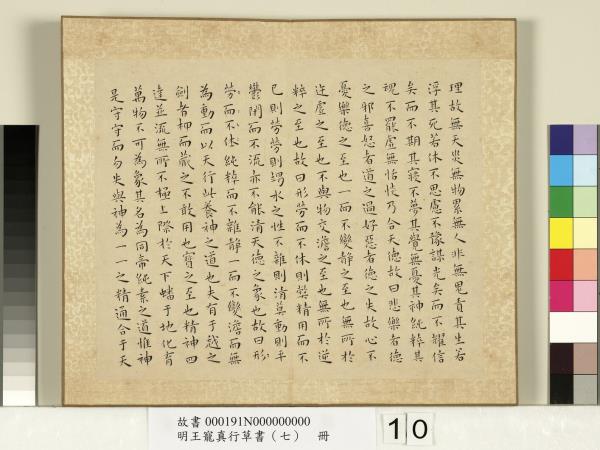 理故無天災無物累無人非無鬼責其生若
浮其死若休不思慮不豫謀光矣而不耀信
矣而不期其寢不夢其覺無憂其神純粹其
魂不罷虛無恬惔乃合天德故曰悲樂者德
之邪喜怒者道之過好惡者德之失故心不
憂樂德之至也一而不變靜之至也無所於
迕虛之至也不與物交澹之至也無所於逆
粹之至也故曰形勞而不休則弊精用而不
已則勞勞則竭水之性不雜則清莫動則平
鬱閉而不流亦不能清天德之象也故曰形
勞而不休純粹而不雜靜一而不變澹而無
為動而以天行此養神之道也夫有于越之
劍者柙而藏之不敢用也寶之至也精神四
達並流無所不極上際於天下蟠于地化育
萬物不可為象其名為同帝純素之道惟神
是守守而勿失與神為一一之精通合于天
故書 000191N000000000
明王寵真行草書（七） 冊
10